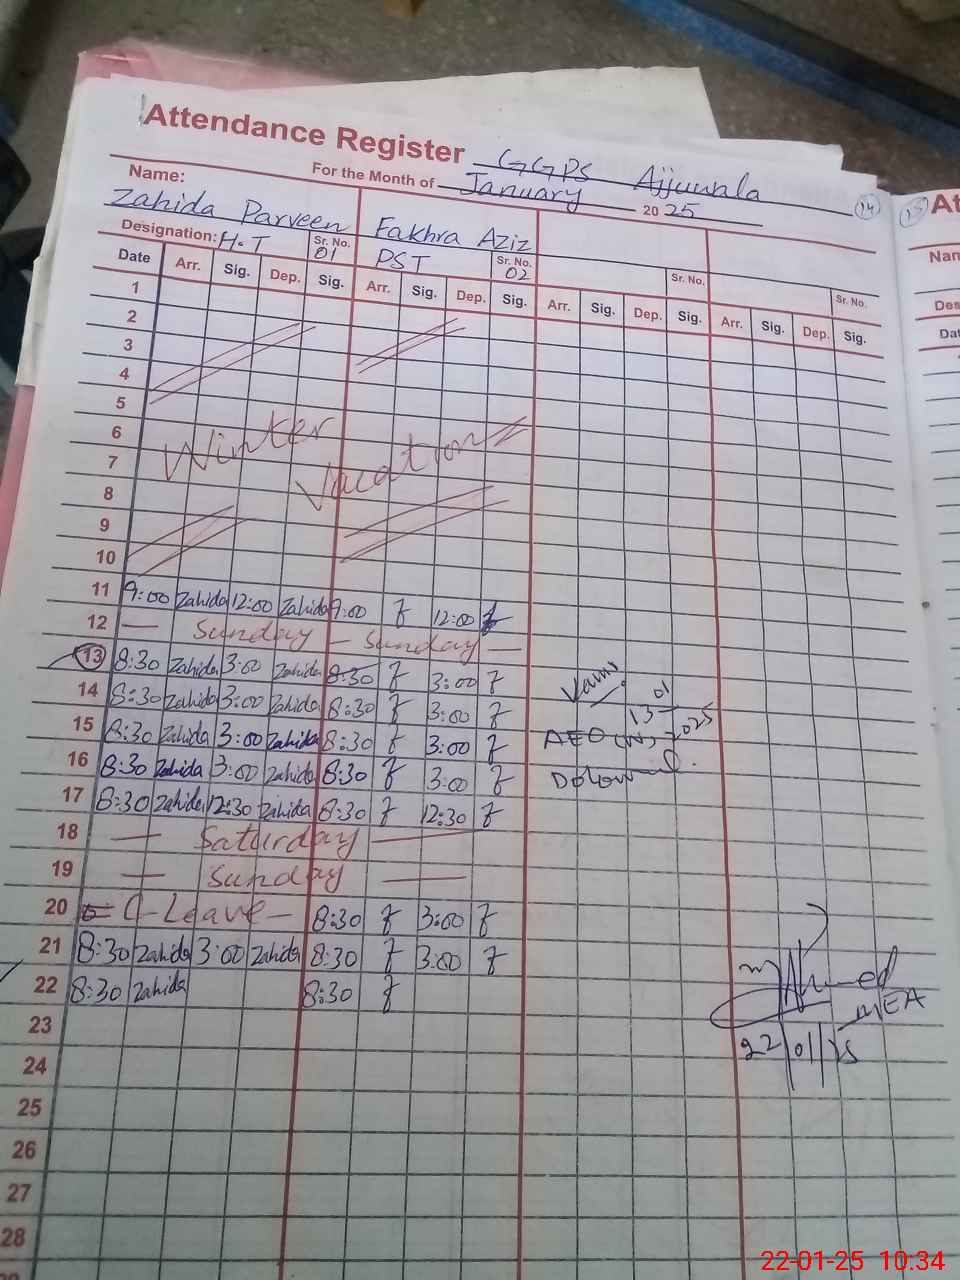 Attendance Register GGPS Ajjuwala
For the Month of January 2025
14
15
At
Name:
Zahida Parveen Fakhra Aziz
Nam
Designation: H.T Sr. No. 01 PST Sr. No. 02 Sr. No. Sr. No.
Des
Date Arr. Sig. Dep. Sig. Arr. Sig. Dep. Sig. Arr. Sig. Dep. Sig. Arr. Sig. Dep. Sig.
Dat
1
2
3
4
5
6 Winter
7 Vacation
8
9
10
11 9:00 Zahida 12:00 Zahida 9:00 12:00
12 — Sunday — Sunday —
13 8:30 Zahida 3:00 Zahida 8:30 3:00
14 8:30 Zahida 3:00 Zahida 8:30 3:00
13 01 2025
15 8:30 Zahida 3:00 Zahida 8:30 3:00
AEO (W)
16 8:30 Zahida 3:00 Zahida 8:30 3:00
17 8:30 Zahida 12:30 Zahida 8:30 12:30
18 — Saturday —
19 — Sunday —
20 C-Leave - 8:30 3:00
21 8:30 Zahida 3:00 Zahida 8:30 3:00
22 8:30 Zahida 8:30
Ahmed
MEA
22/01/25
23
24
25
26
27
28
22-01-25 10:34